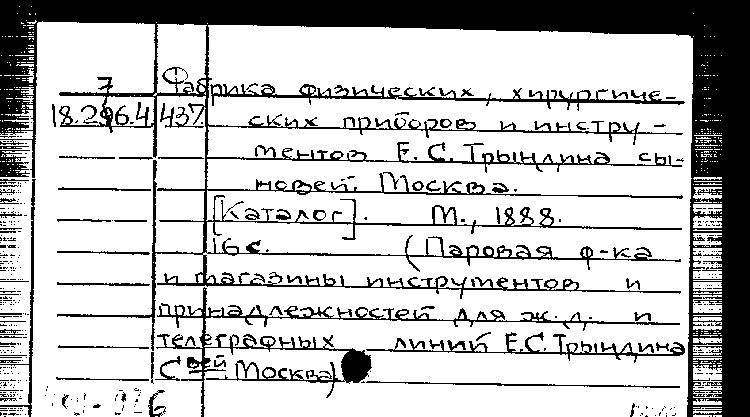 7 Фабрика физических, хирургиче-
18.296.4.437 ских приборов и инстру-
ментов Е.С. Трындина сы-
новей. Москва.
[Каталог]. М., 1888.
16 с. (Паровая ф-ка
и магазины инструментов и
принадлежностей для ж.д. и
телеграфных линий Е.С. Трындина
С-вей Москва)